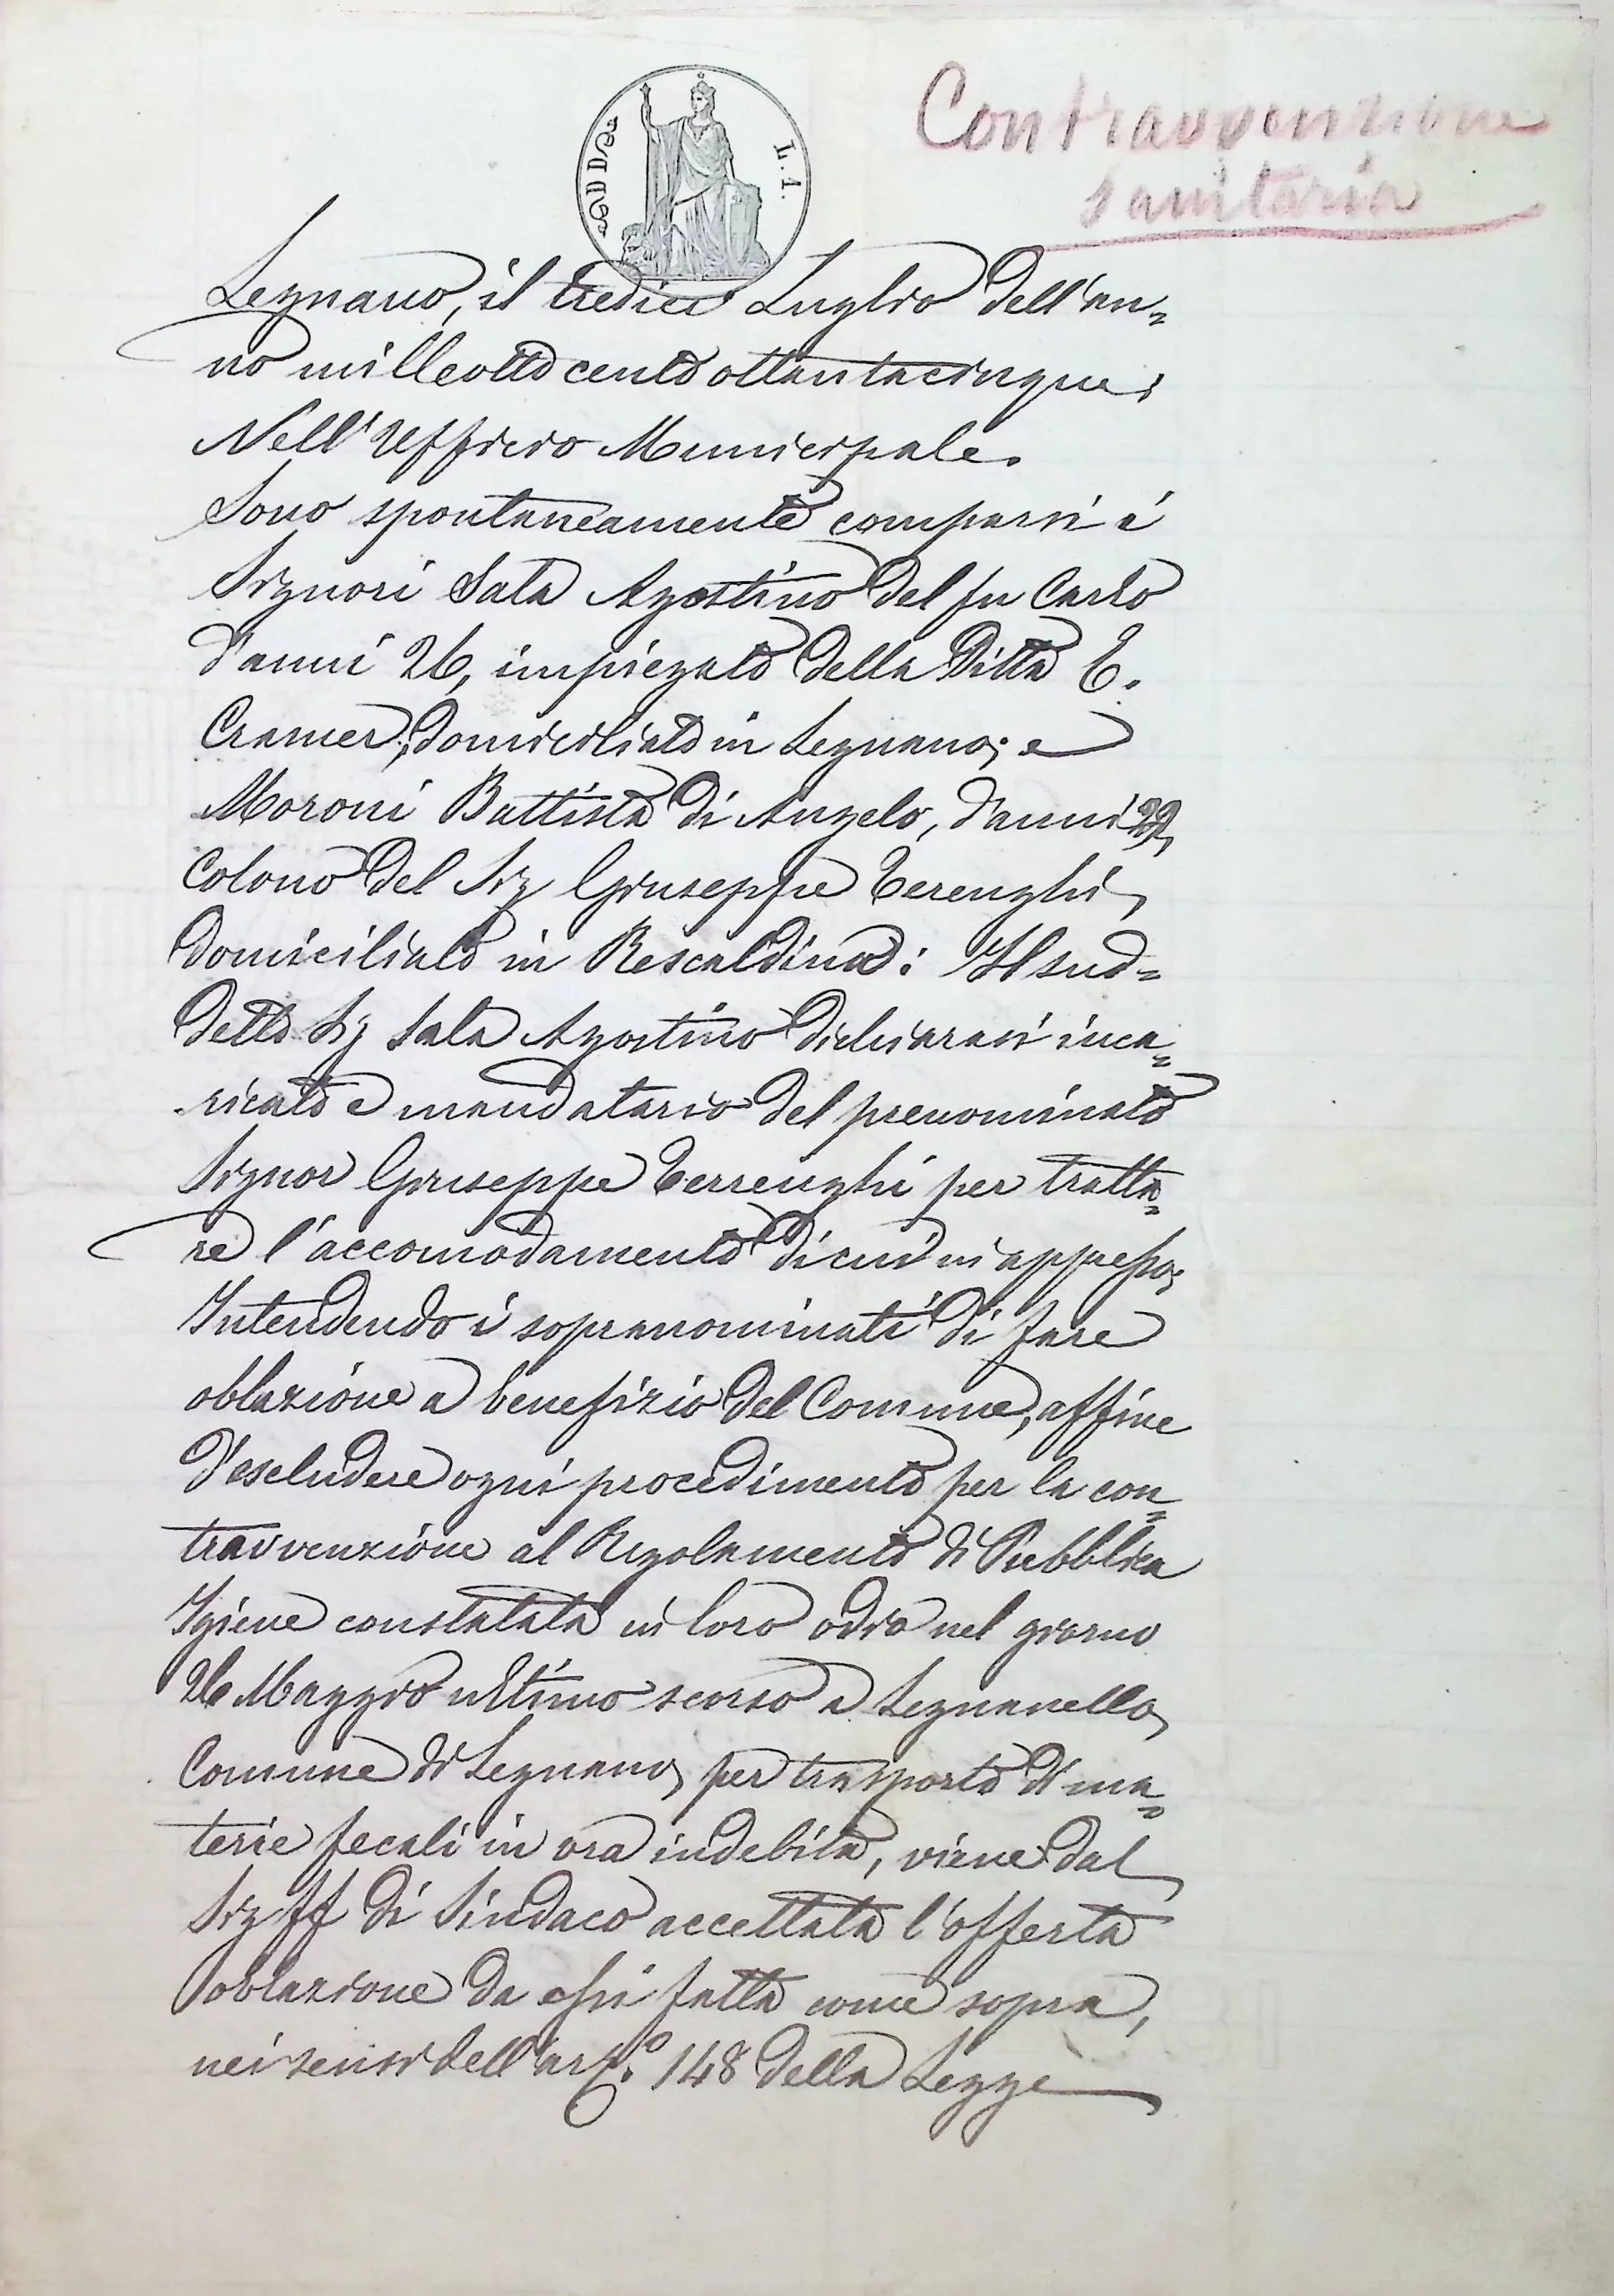 Contravvenzione
sanitaria
L. 1.
Legnano, il tredici Luglio dell'an=
no milleottocentoottantacinque;
Nell'Ufficio Municipale.
Sono spontaneamente comparsi i
Signori Sala Agostino del fu Carlo
d'anni 26, impiegato della Ditta E.
Cramer, domiciliato in Legnano; e
Moroni Battista di Angelo, d'anni 22,
Colono del Sig Giuseppe Terenghi,
domiciliato in Rescaldina: Il sud=
detto Sig Sala Agostino dichiarasi inca=
ricato e mandatario del prenominato
Signor Giuseppe Terrenghi per tratta=
re l'accomodamento di cui in appresso;
Intendendo i sopranominati di fare
oblazione a benefizio del Comune, affine
d'escludere ogni procedimento per la con=
travvenzione al Regolamento di Pubblica
Igiene constatata in loro odio nel giorno
26 Maggio ultimo scorso a Legnanello,
Comune di Legnano, per trasporto di ma=
terie fecali in ora indebita, viene dal
Sig ff di Sindaco accettata l'offerta
oblazione da essi fatta come sopra,
nei sensi dell'art.º 148 della Legge